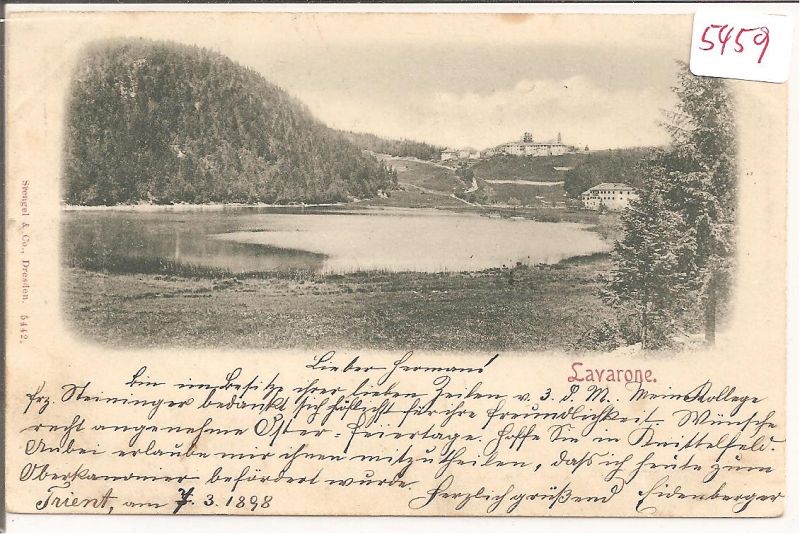 5459
Stengel & Co., Dresden. 5442.
Lavarone.
Lieber Hermann!
bin im Besitze ihrer lieben Zeilen v. 3. d. M. Mein Kollege
frz. Steininger bedankt sich höflichst für ihre freundlichkeit. Wünsche
recht angenehme Oster-feiertage. Hoffe Sie in Knittelfeld.
Anbei erlaube mir ihnen mitzutheilen, dass ich heute zum
Oberkanonier befördert wurde.
Herzlich grüßend Eidenberger
Trient, am 7. 3. 1898